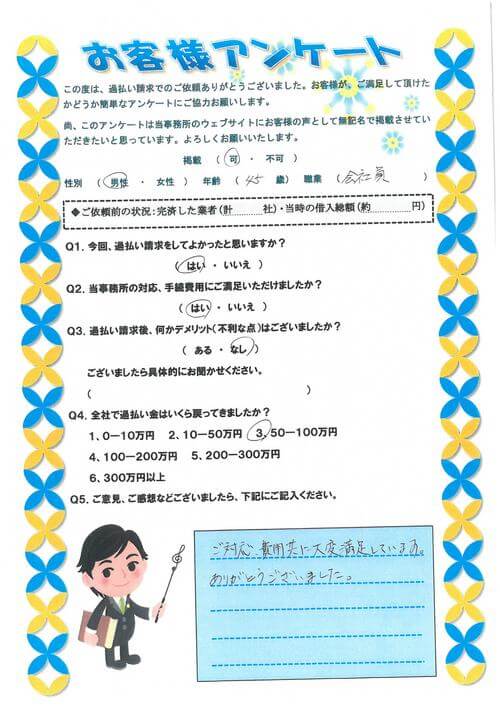 お客様アンケート
この度は、過払い請求でのご依頼ありがとうございました。お客様が、ご満足して頂けた
かどうか簡単なアンケートにご協力お願いします。
尚、このアンケートは当事務所のウェブサイトにお客様の声として無記名で掲載させてい
ただきたいと思っています。よろしくお願いいたします。
掲載 ( 可 ・ 不可 )
性別 ( 男性 ・ 女性 ) 年齢 ( 45 歳) 職業 ( 会社員 )
◆ご依頼前の状況:完済した業者(計 社)・当時の借入総額(約 円)
Q1. 今回、過払い請求をしてよかったと思いますか?
( はい ・ いいえ )
Q2. 当事務所の対応、手続費用にご満足いただけましたか?
( はい ・ いいえ )
Q3. 過払い請求後、何かデメリット(不利な点)はございましたか?
( ある ・ なし )
ございましたら具体的にお聞かせください。
( )
Q4. 全社で過払い金はいくら戻ってきましたか?
1、0-10万円 2、10-50万円 3、50-100万円
4、100-200万円 5、200-300万円
6、300万円以上
Q5. ご意見、ご感想などございましたら、下記にご記入ください。
ご対応、費用共に大変満足しています。
ありがとうございました。